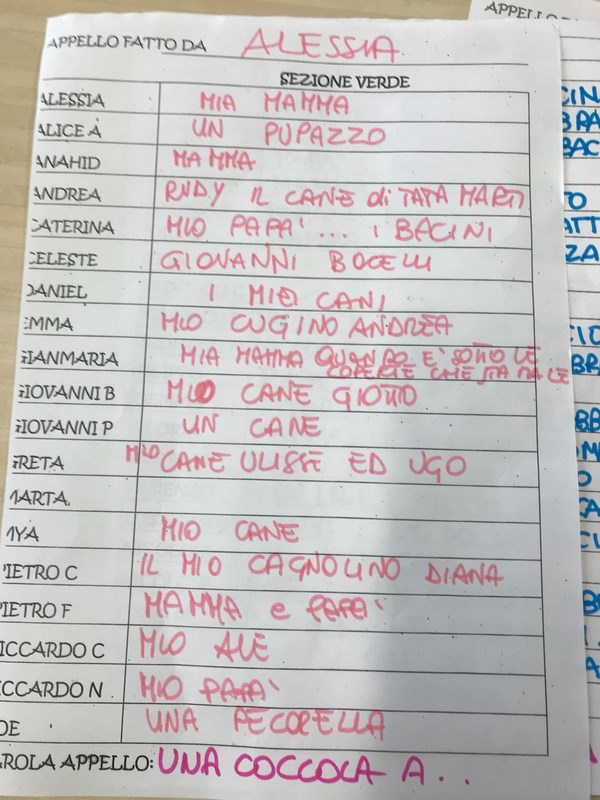 APPELLO FATTO DA ALESSIA
SEZIONE VERDE
ALESSIA MIA MAMMA
ALICE A UN PUPAZZO
ANAHID MAMMA
ANDREA RUDY IL CANE di TATA MARTI
CATERINA MIO PAPA' ... I BACINI
CELESTE GIOVANNI BOCELLI
DANIEL I MIEI CANI
EMMA MIO CUGINO ANDREA
GIANMARIA MIA MAMMA QUANDO E' SOTTO LE
COPERTE CHE STA MALE
GIOVANNI B MIO CANE GIOTTO
GIOVANNI P UN CANE
GRETA MIO CANE ULISSE ED UGO
MARTA.
MYA MIO CANE
PIETRO C IL MIO CAGNOLINO DIANA
PIETRO F MAMMA e PAPA'
RICCARDO C MIO ALE
RICCARDO N MIO PAPA'
OE UNA PECORELLA
ROLA APPELLO: UNA COCCOLA A . .
APPELLO